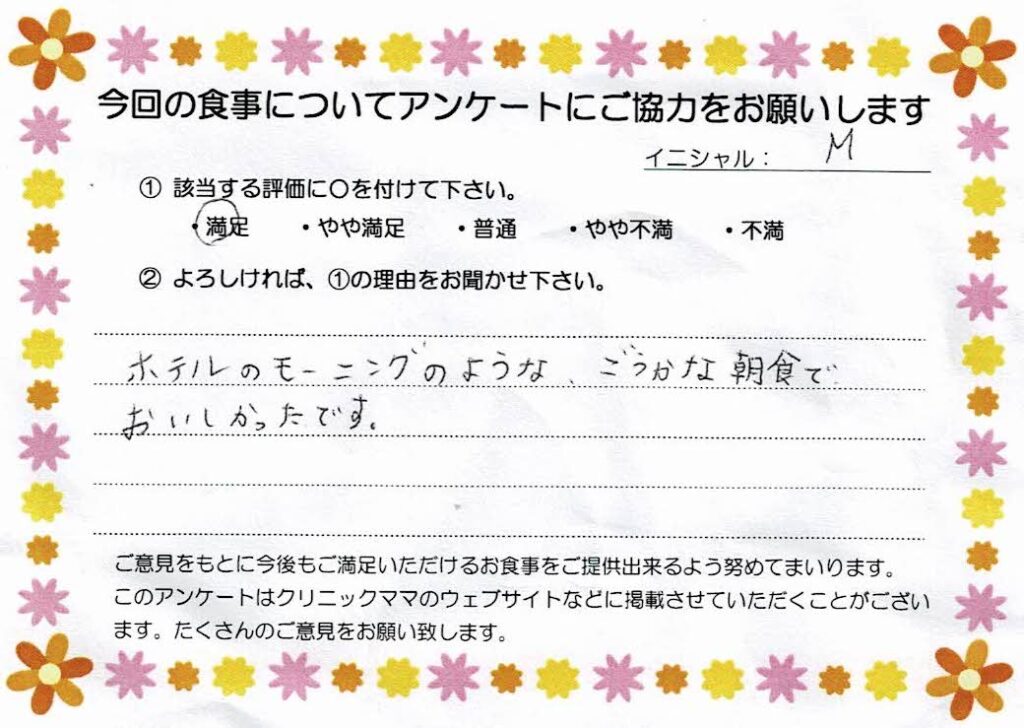 今回の食事についてアンケートにご協力をお願いします
イニシャル： M
① 該当する評価に〇を付けて下さい。
・満足 ・やや満足 ・普通 ・やや不満 ・不満
② よろしければ、①の理由をお聞かせ下さい。
ホテルのモーニングのような、ごうかな朝食で
おいしかったです。
ご意見をもとに今後もご満足いただけるお食事をご提供出来るよう努めてまいります。
このアンケートはクリニックママのウェブサイトなどに掲載させていただくことがござい
ます。たくさんのご意見をお願い致します。